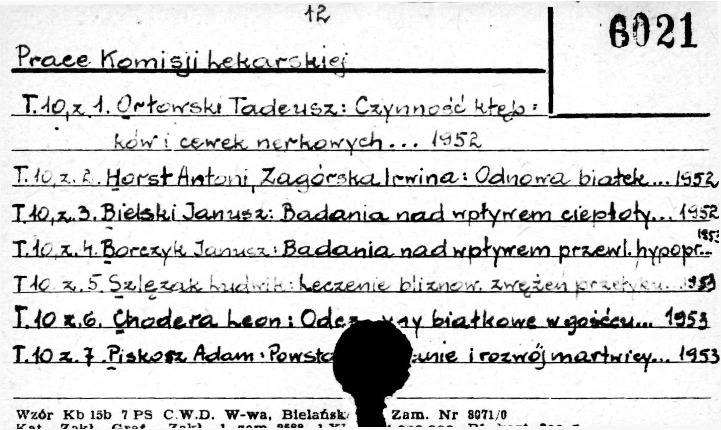 12
6021
Prace Komisji Lekarskiej
T.10, z. 1. Orłowski Tadeusz: Czynność kłęb-
ków i cewek nerkowych... 1952
T.10, z. 2. Horst Antoni, Zagórska Irwina: Odnowa białek... 1952
T.10, z. 3. Bielski Janusz: Badania nad wpływem ciepłoty... 1952
T.10 z. 4. Borczyk Janusz: Badania nad wpływem przewl. hypopr... 1953
T10 z. 5. Szlęzak Ludwik: Leczenie bliznow. zwężeń przełyku... 1953
T.10 z. 6. Chodera Leon: Odczyny białkowe w gośćcu... 1953
T.10 z. 7. Piskorz Adam: i rozwój martwicy... 1953
Wzór Kb 15b 7 PS C.W.D. W-wa, Bielańsk Zam. Nr 8071/0